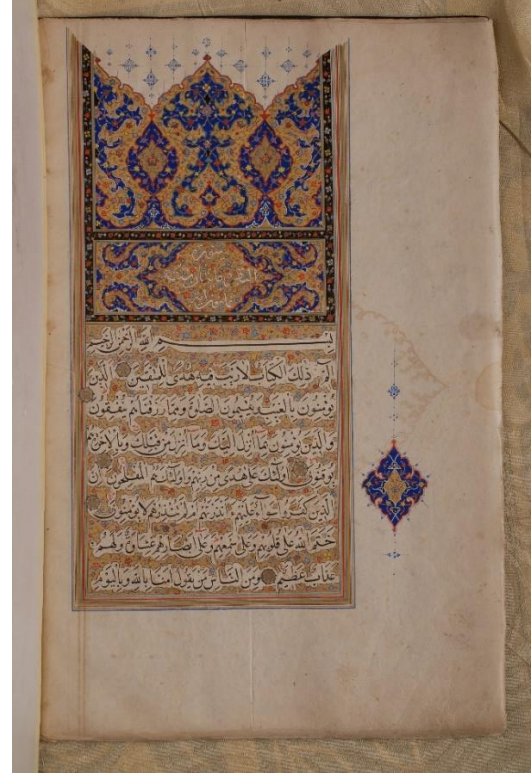 بسم الله الرحمن الرحيم
الم ذلك الكتاب لا ريب فيه هدى للمتقين الذين
يؤمنون بالغيب ويقيمون الصلوة ومما رزقناهم ينفقون
والذين يؤمنون بما انزل اليك وما انزل من قبلك وبالاخرة هم
يوقنون اولئك على هدى من ربهم واولئك هم المفلحون ان
الذين كفروا سواء عليهم ءانذرتهم ام لم تنذرهم لا يؤمنون
ختم الله على قلوبهم وعلى سمعهم وعلى ابصارهم غشاوة ولهم
عذاب عظيم ومن الناس من يقول امنا بالله وباليوم